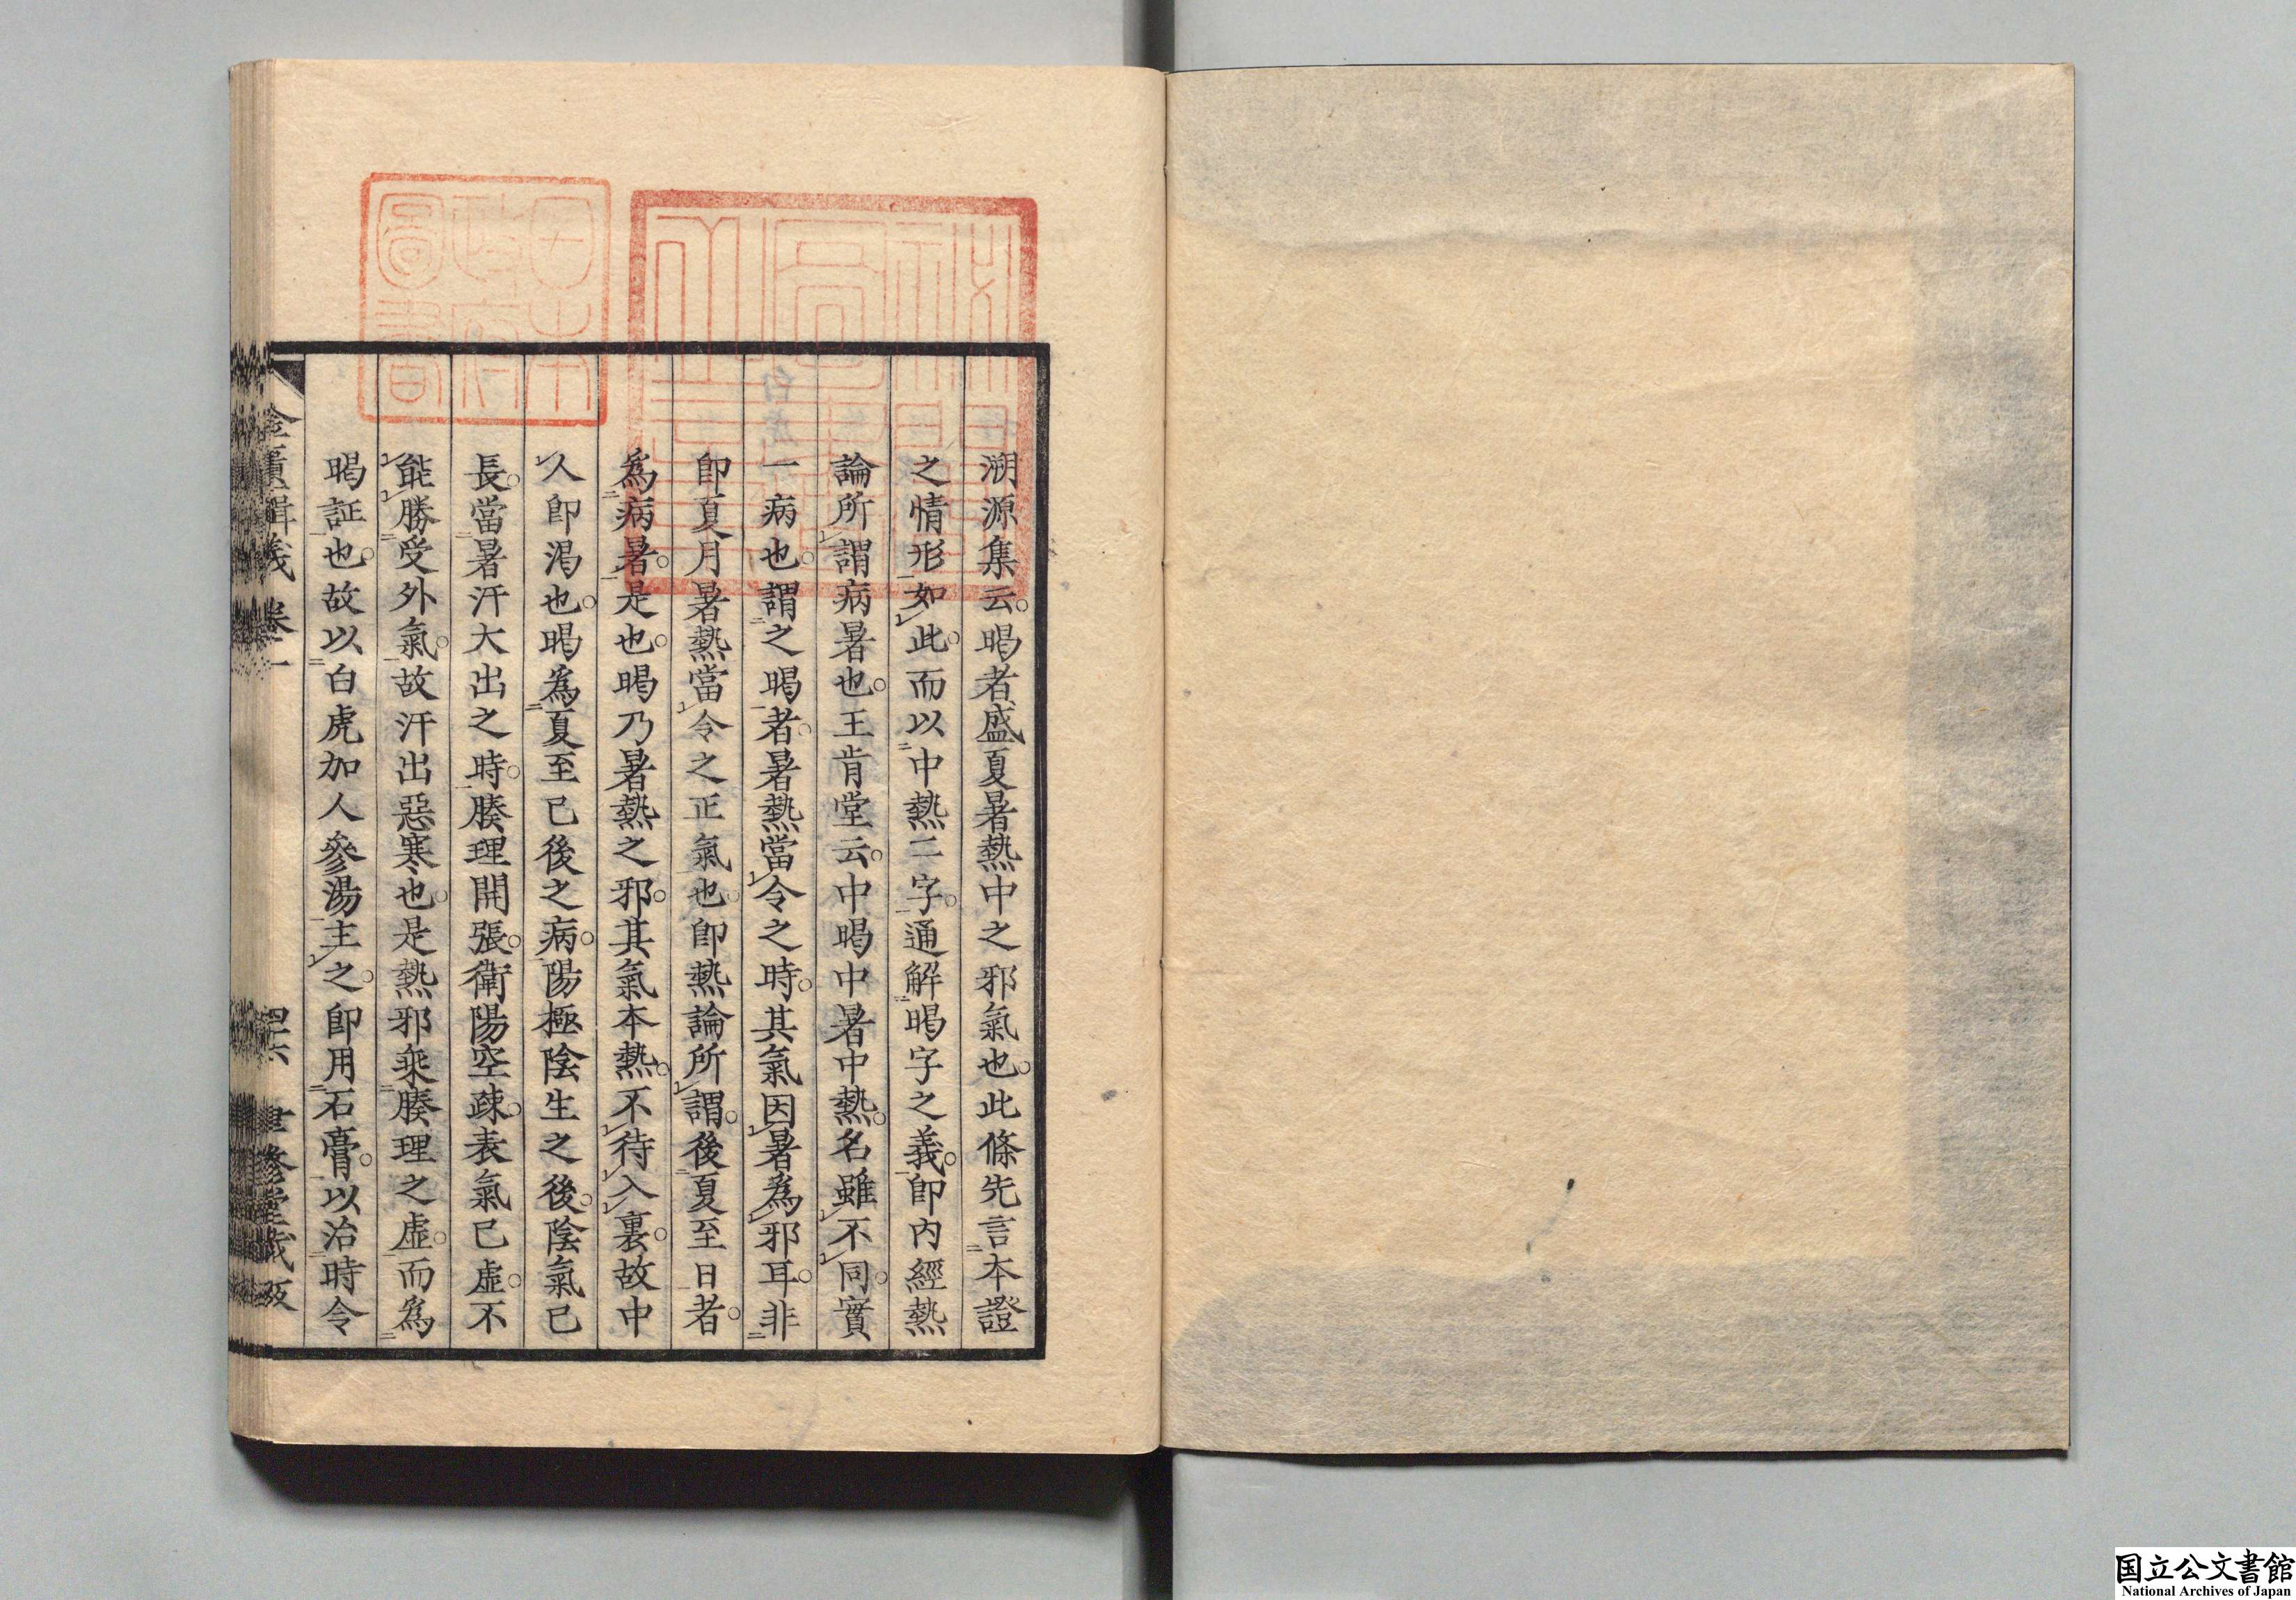 溯源集云。暍者盛夏暑熱中之邪氣也。此條先言本證
之情形如此。而以中熱二字。通解暍字之義。卽內經熱
論所謂病暑也。王肯堂云。中暍中暑中熱。名雖不同。實
一病也。謂之暍者。暑熱當令之時。其氣因暑爲邪耳。非
卽夏月暑熱當令之正氣也。卽熱論所謂。後夏至日者。
爲病暑。是也。暍乃暑熱之邪。其氣本熱。不待入裏。故中
人卽渴也。暍爲夏至已後之病。陽極陰生之後。陰氣已
長。當暑汗大出之時。腠理開張。衛陽空疎。表氣已虛。不
能勝受外氣。故汗出惡寒也。是熱邪乘腠理之虛。而爲
暍証也。故以白虎加人參湯主之。卽用石膏。以治時令
金匱輯義 卷一
聿修堂藏版
日本
政府
圖書
国立公文書館
National Archives of Japan